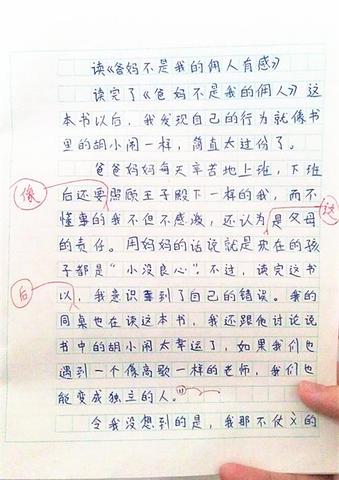 读《爸妈不是我的佣人有感》
读完了《爸妈不是我的佣人》这
本书以后，我发现自己的行为就像书
里的胡小闹一样，简直太过份了。
爸爸妈妈每天辛苦地上班，下班
像
后还要照顾王子殿下一样的我，而不
懂事的我不但不感激，还认为是父母
这
的责任。用妈妈的话说就是现在的孩
子都是“小没良心”。不过，读完这书
后
以，我意识到了自己的错误。我的
同桌也在读这本书，我还跟他讨论说
书中的胡小闹太幸运了，如果我们也
遇到一个像高歌一样的老师，我们也
能变成独立的人。”
令我没想到的是，我那不仗义的